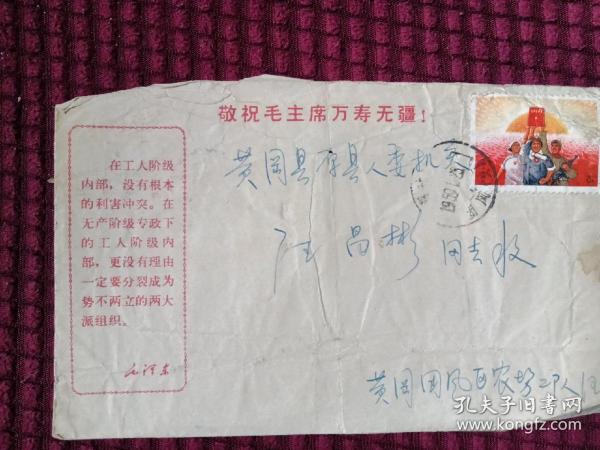 敬祝毛主席万寿无疆！
在工人阶级
内部，没有根本
的利害冲突。在
无产阶级专政下
的工人阶级内
部，更没有理由
一定要分裂成为
势不两立的两大
派组织。
毛泽东
黄冈县原县人委机关
汪昌彬 同志收
黄冈团风区农场
孔夫子旧书网
www.kongfz.com